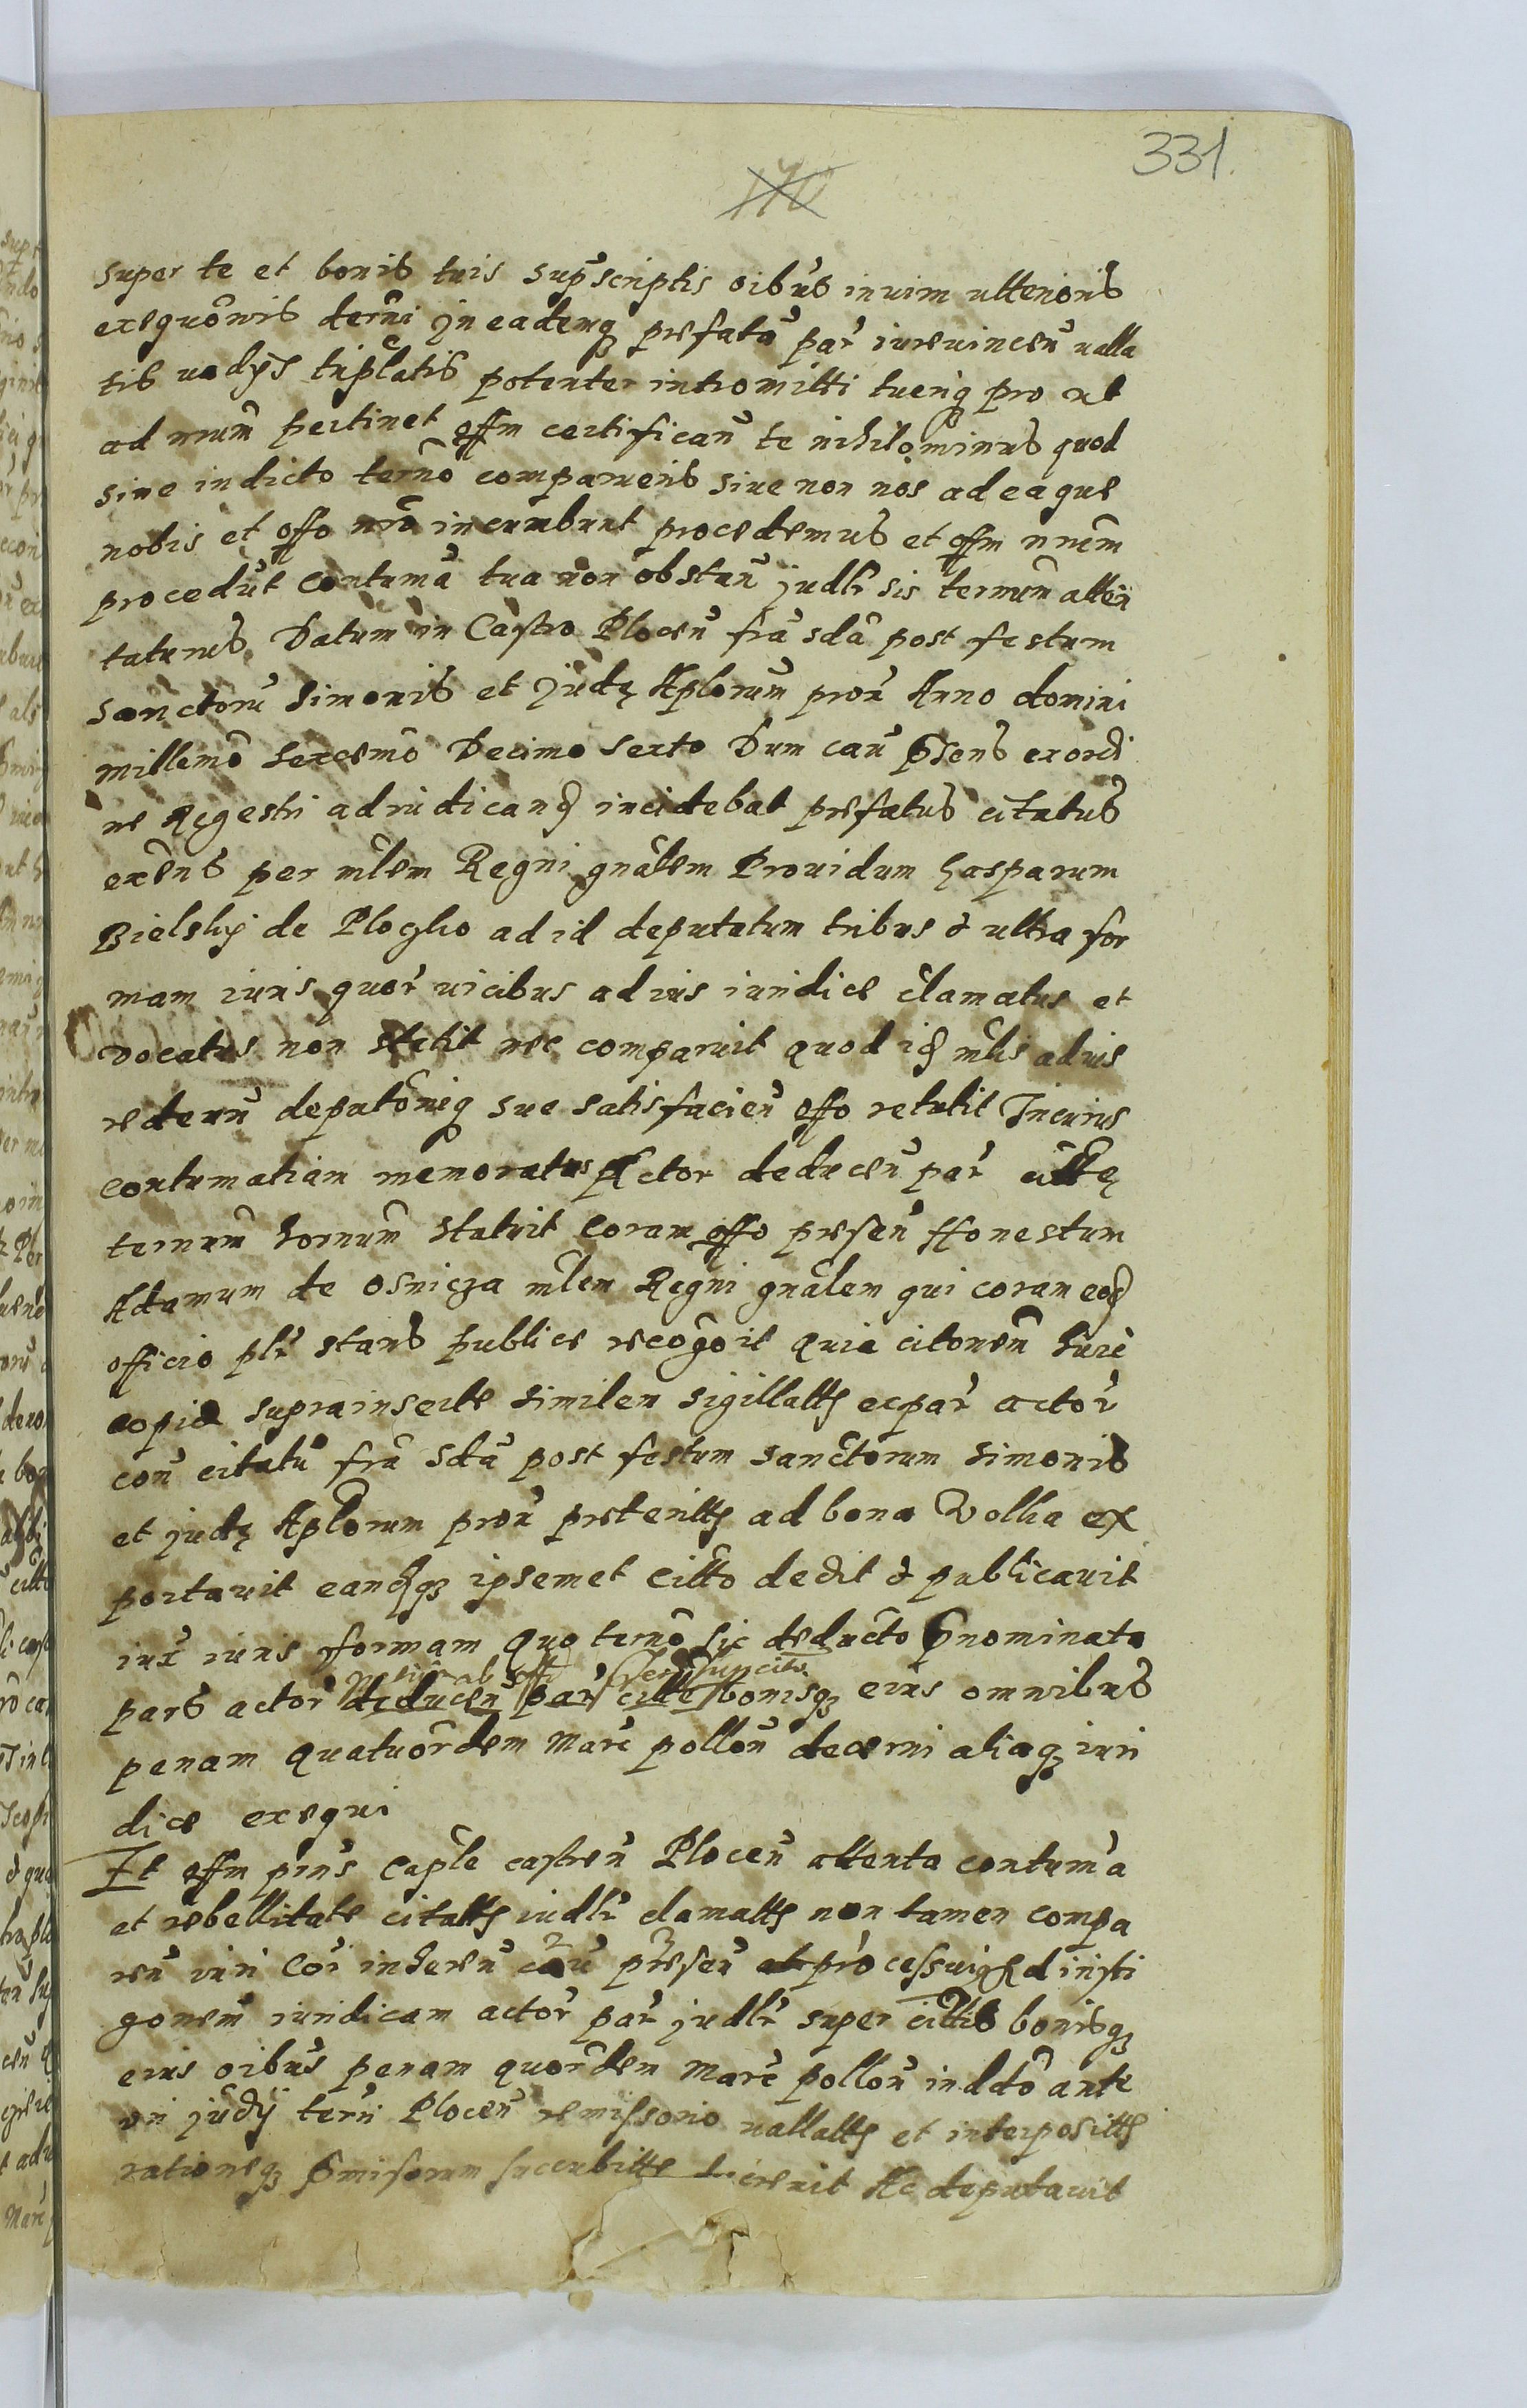 331.
super te et bonis tuis supscriptis oibus in vim ulterioris
exequonis derni in eademq prefato par iurevincen valla
tis vadys triplatis potenter intromitti tueriq pro ut
ad nrum pertinet offm certifican te nihilominus quod
sive in dicto termo comparueris sive non nos ad ea que
nobis et offo nro incumbunt procedemus et offm nrum
procedut contuma tua non obstan judlr sis termum atten
taturus Datum in Castro Plocen fra sda post festum
sanctoru Simonis et Jude Aplorum prox Anno domini
millemo sexcemo Decimo sexto Dum cau pñs ex ordi
ne Regestri adiudicand incidebat prefatus citatus
exens per mlem Regni gnalem Providum Gasparum
Bielsky de Plogko ad id deputatum tribus & ultra for
mam iuris quor vicibus ad ius iuridice clamatus et
vocatus non stetit nec comparuit quod id mlis ad ius
redeun deputoniq sue satisfacien offo retulit In cuius
contumatiam memoratus Actor deducen par citte
termum hornum statuit coram offo presen Honestum
Adamum de Osnicza mlem Regni gnalem qui coram eod
officio plr stans publice recogoit quia citonem
copie suprainserte similem sigillatts ex par actor
con citatu fra sda post festum sanctorum Simonis
et Jude Aplorum prox preteritts ad bona Wolka ex
portavit eandqz ipsemet citto dedit & publicavit
iux iuris formam Quo termo sic deducto pnominata
ab offo
pars actor deducen par citte bonisqz eius omnibus
penam quatuordem marc pollon decerni aliaqz iuri
dice exequi
Et offm pns Caple castren Plocen attenta contuma
et rebellitate citatts iudlr clamatts non tamen compa
ren iuri coi inheren cau presen processuiq ad insti
gonem iuridicam actor par judlr super cittis bonisqz
eius oibus penam quordem marc pollon in ddo ante
ori judy terri Plocen remissorio vallatts et interpositts
rationeqz pmisorum succubitte decrevit Ac deputavit